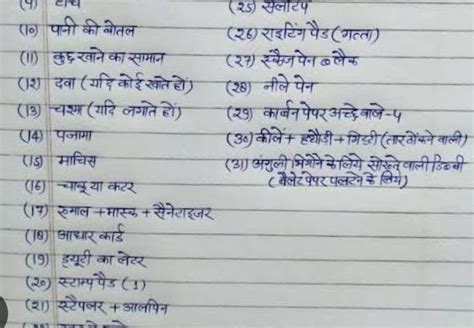 (9) टॉर्च
(10) पानी की बोतल
(11) कुछ खाने का सामान
(12) दवा (यदि कोई खाते हों)
(13) चश्मा (यदि लगाते हों)
(14) पजामा
(15) माचिस
(16) चाकू या कटर
(17) रुमाल + मास्क + सैनेटाइजर
(18) आधार कार्ड
(19) ड्यूटी का लेटर
(20) स्टाम्प पैड (1)
(21) स्टैपलर + आलपिन
(25) सेलोटेप
(26) राइटिंग पैड (गत्ता)
(27) स्कैज पेन ब्लैक
(28) नीले पेन
(29) कार्बन पेपर अच्छे वाले-4
(30) कीलें + हथौडी + गिट्टी (तार ठोंकने वाली)
(31) अंगुली भिगोने के लिये सोख्ते वाली डिब्बी
(बैलेट पेपर पलटने के लिये)